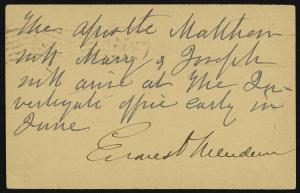 The apostle Matthew
with Marry & Joseph
will arive at The In-
vestigate office early in
June
Ernest